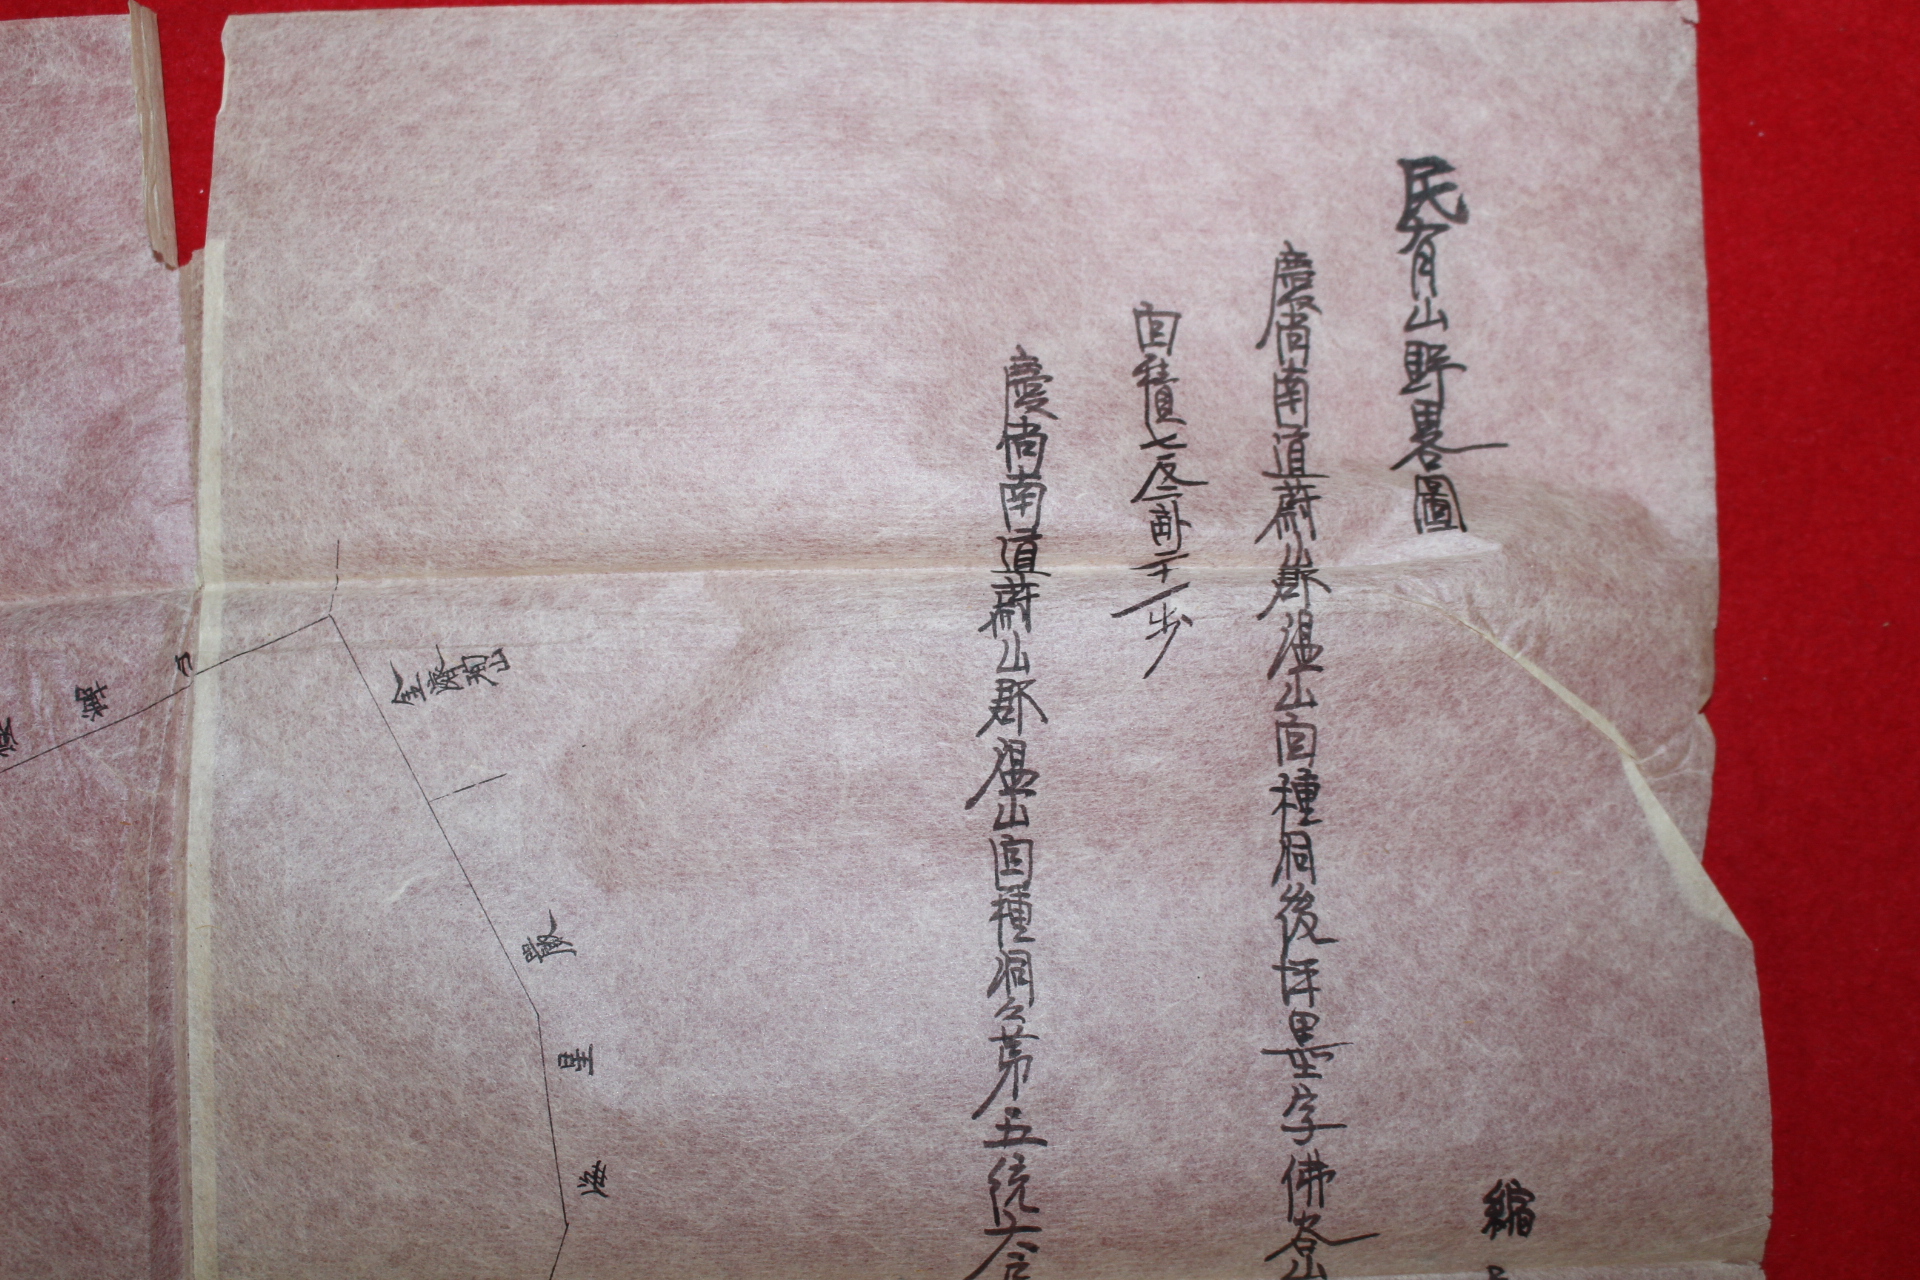 民有山野畧圖
慶尙南道蔚山郡温山面種洞後坪墨字佛谷山
面積七反六畝二十一步
慶尙南道蔚山郡温山面種洞公第五統六合
縮
金
山
嚴
星